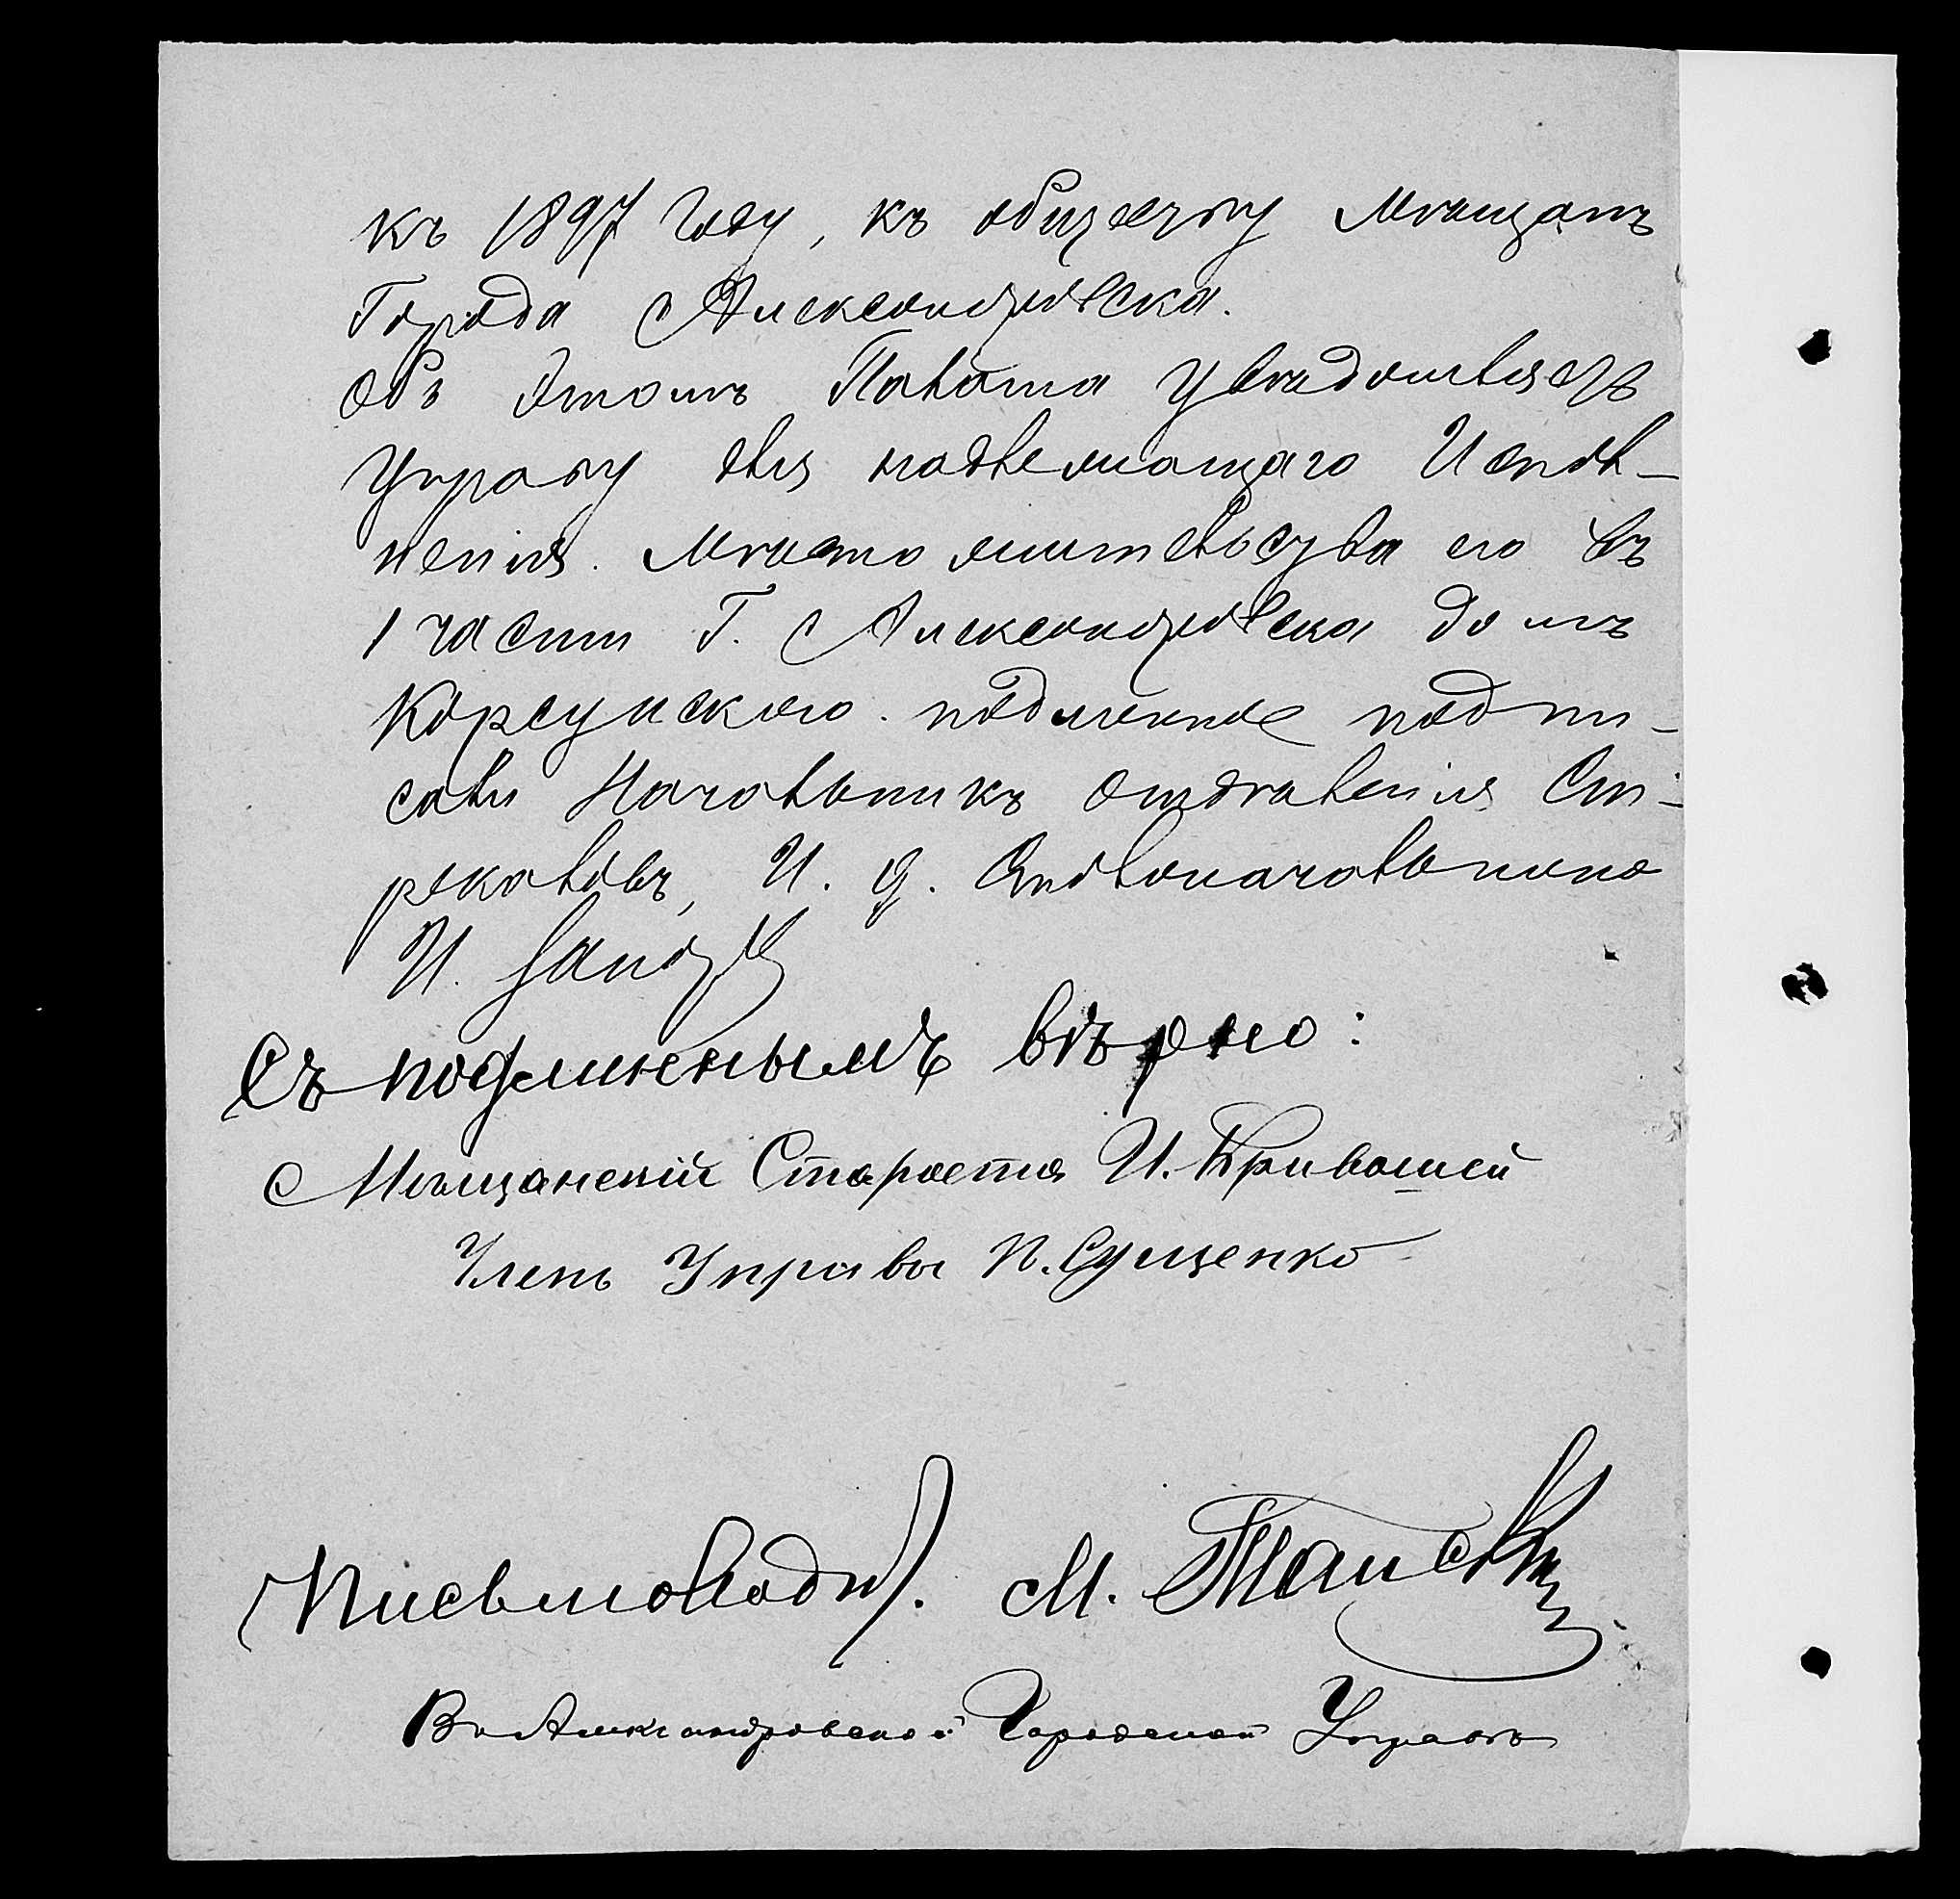 къ 1897 году, къ обществу Мѣщанъ
Города Александровска.
Объ этомъ Палата увѣдомляетъ
Управу для надлежащаго Испол-
ненія. Мѣсто жительства его въ
1 части Г. Александровска домъ
Корсунскаго. подлинное подпи-
сали Начальникъ отдѣленія
И. д. Столоначальника
И.
Съ подлиннымъ вѣрно:
Мѣщанскій Староста И. Кривошей
Членъ Управы П. Сущенко
Письмоводит. М.
Въ Александровской Городской Управѣ